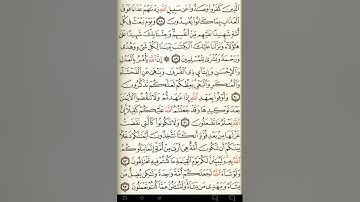 الذين كفروا وصدوا عن سبيل الله زدنهم عذابا فوق
العذاب بما كانوا يفسدون ويوم نبعث في كل
أمة شهيدا عليهم من أنفسهم وجئنا بك شهيدا على
هؤلاء ونزلنا عليك الكتب تبينا لكل شيء وهدى
ورحمة وبشرى للمسلمين إن الله يأمر بالعدل
والإحسن وإيتاي ذي القربى وينهى عن الفحشاء
والمنكر والبغي يعظكم لعلكم تذكرون
وأوفوا بعهد الله إذا عهدتم ولا تنقضوا الأيمن
بعد توكيدها وقد جعلتم الله عليكم كفيلا إن
الله يعلم ما تفعلون ولا تكونوا كالتي نقضت
غزلها من بعد قوة أنكثا تتخذون أيمنكم دخلا
بينكم أن تكون أمة هي أربى من أمة إنما يبلوكم
الله به وليبينن لكم يوم القيمة ما كنتم فيه تختلفون
ولو شاء الله لجعلكم أمة وحدة ولكن يضل من
يشاء ويهدي من يشاء ولتسئلن عما كنتم تعملون